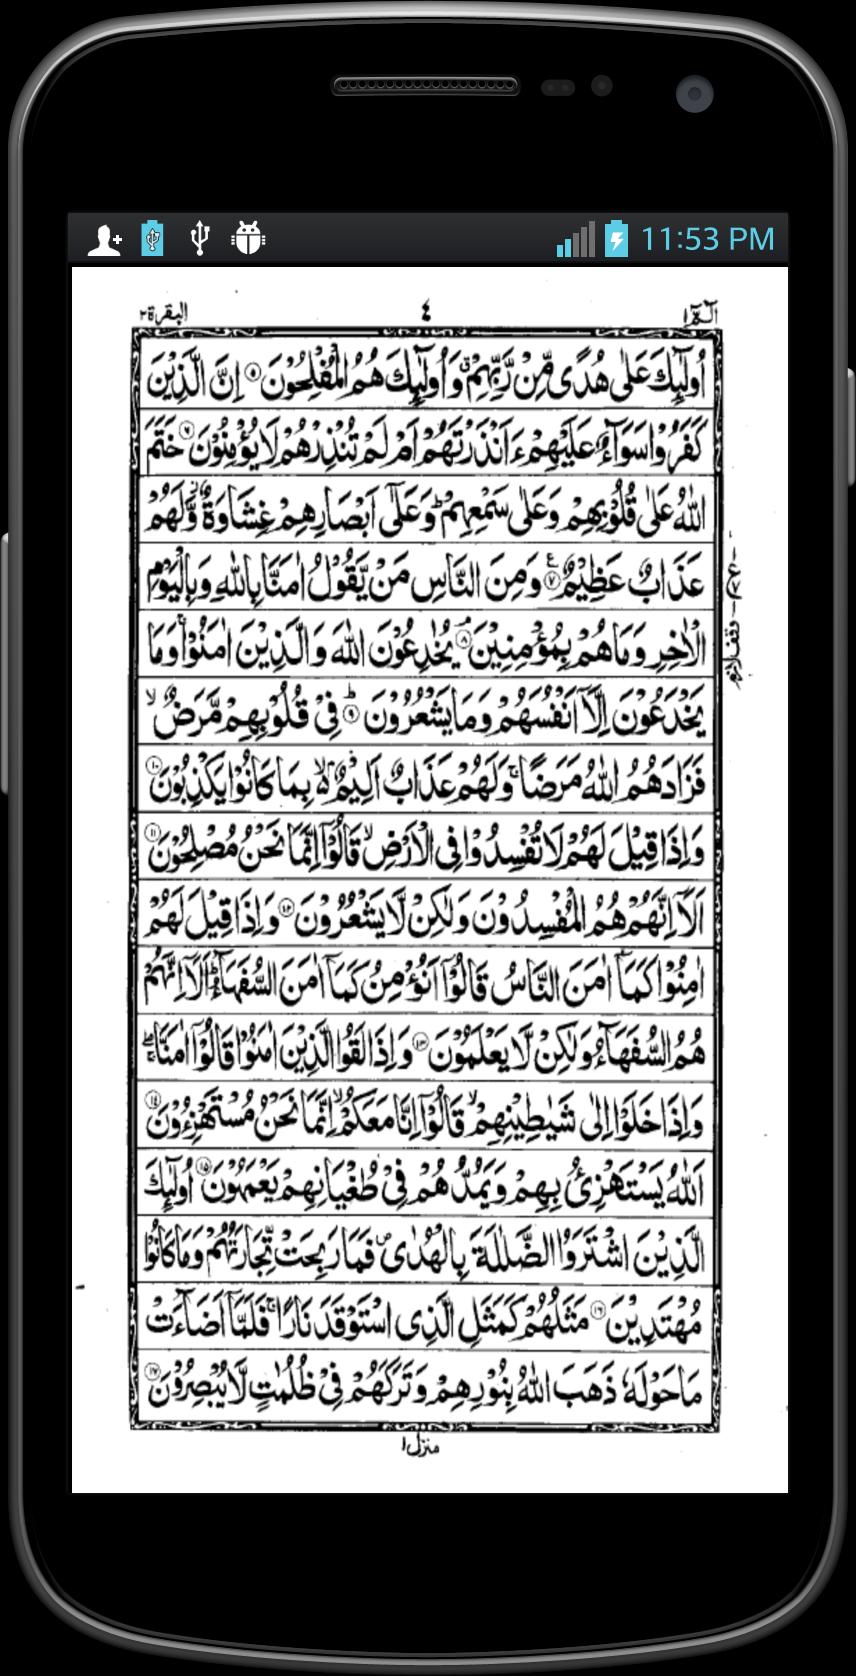 11:53 PM
الٓمّٓ ١ ٤ البقرة ٢
اُولٰٓئِكَ عَلٰى هُدًى مِّنْ رَّبِّهِمْ ۗ وَاُولٰٓئِكَ هُمُ الْمُفْلِحُوْنَ ۝٥ اِنَّ الَّذِيْنَ
كَفَرُوْا سَوَآءٌ عَلَيْهِمْ ءَاَنْذَرْتَهُمْ اَمْ لَمْ تُنْذِرْهُمْ لَا يُؤْمِنُوْنَ ۝٦ خَتَمَ
اللّٰهُ عَلٰى قُلُوْبِهِمْ وَعَلٰى سَمْعِهِمْ ؕ وَعَلٰٓى اَبْصَارِهِمْ غِشَاوَةٌ ۚ وَّلَهُمْ
عَذَابٌ عَظِيْمٌ ۝٧ ع وَمِنَ النَّاسِ مَنْ يَّقُوْلُ اٰمَنَّا بِاللّٰهِ وَبِالْيَوْمِ
الْاٰخِرِ وَمَا هُمْ بِمُؤْمِنِيْنَ ۝٨ۘ يُخٰدِعُوْنَ اللّٰهَ وَالَّذِيْنَ اٰمَنُوْا ۚ وَمَا
وقف لازم
يَخْدَعُوْنَ اِلَّآ اَنْفُسَهُمْ وَمَا يَشْعُرُوْنَ ۝٩ؕ فِيْ قُلُوْبِهِمْ مَّرَضٌ ۙ
فَزَادَهُمُ اللّٰهُ مَرَضًا ۚ وَلَهُمْ عَذَابٌ اَلِيْمٌ ۙ۬ بِمَا كَانُوْا يَكْذِبُوْنَ ۝١٠
وَاِذَا قِيْلَ لَهُمْ لَا تُفْسِدُوْا فِى الْاَرْضِ ۙ قَالُوْٓا اِنَّمَا نَحْنُ مُصْلِحُوْنَ ۝١١
اَلَآ اِنَّهُمْ هُمُ الْمُفْسِدُوْنَ وَلٰكِنْ لَّا يَشْعُرُوْنَ ۝١٢ وَاِذَا قِيْلَ لَهُمْ
اٰمِنُوْا كَمَآ اٰمَنَ النَّاسُ قَالُوْٓا اَنُؤْمِنُ كَمَآ اٰمَنَ السُّفَهَآءُ ؕ اَلَآ اِنَّهُمْ
هُمُ السُّفَهَآءُ وَلٰكِنْ لَّا يَعْلَمُوْنَ ۝١٣ وَاِذَا لَقُوا الَّذِيْنَ اٰمَنُوْا قَالُوْٓا اٰمَنَّا ۖۚ
وَاِذَا خَلَوْا اِلٰى شَيٰطِيْنِهِمْ ۙ قَالُوْٓا اِنَّا مَعَكُمْ ۙ اِنَّمَا نَحْنُ مُسْتَهْزِءُوْنَ ۝١٤
اَللّٰهُ يَسْتَهْزِئُ بِهِمْ وَيَمُدُّهُمْ فِيْ طُغْيَانِهِمْ يَعْمَهُوْنَ ۝١٥ اُولٰٓئِكَ
الَّذِيْنَ اشْتَرَوُا الضَّلٰلَةَ بِالْهُدٰى ۪ فَمَا رَبِحَتْ تِّجَارَتُهُمْ وَمَا كَانُوْا
مُهْتَدِيْنَ ۝١٦ مَثَلُهُمْ كَمَثَلِ الَّذِى اسْتَوْقَدَ نَارًا ۚ فَلَمَّآ اَضَآءَتْ
مَا حَوْلَهٗ ذَهَبَ اللّٰهُ بِنُوْرِهِمْ وَتَرَكَهُمْ فِيْ ظُلُمٰتٍ لَّا يُبْصِرُوْنَ ۝١٧
منزل ١